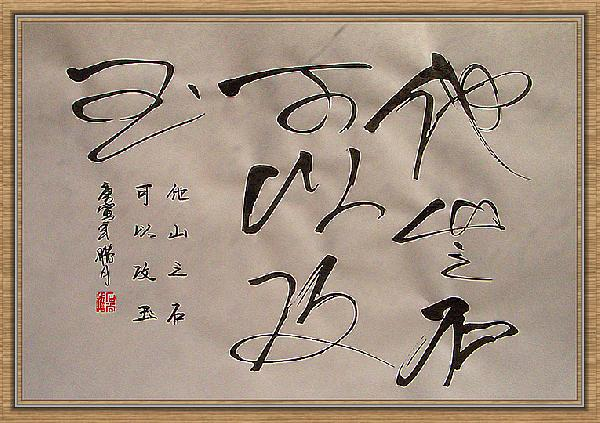 他山之石
可以攻
玉
他山之石
可以攻玉
庚寅